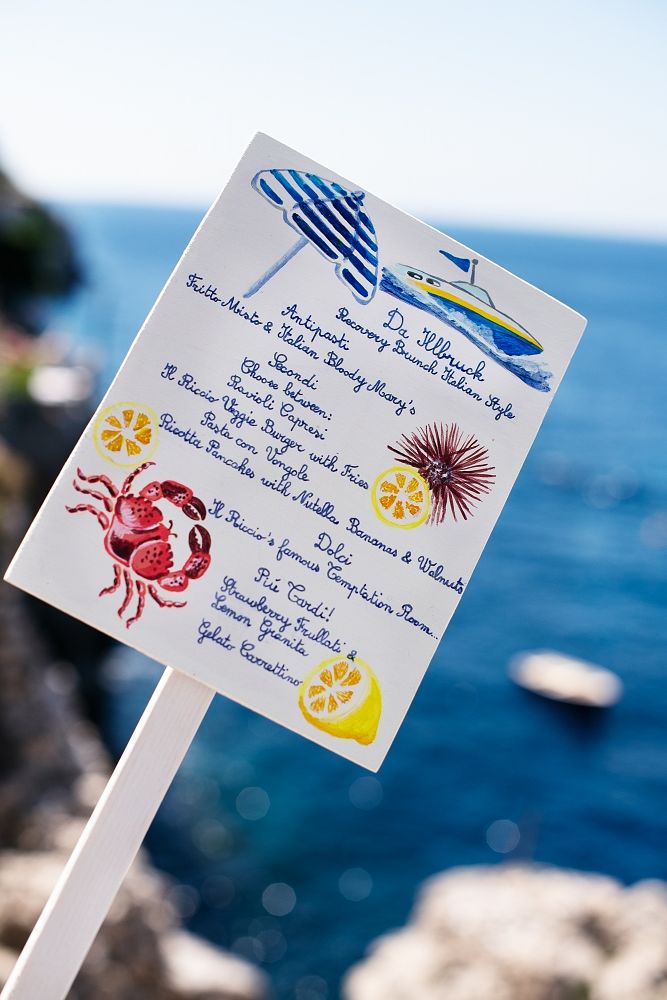 Da Illbruck
Recovery Brunch Italian Style
Antipasti
Fritto Misto & Italian Bloody Mary's
Secondi
Choose between:
Ravioli Capresi
Il Riccio Veggie Burger with Fries
Pasta con Vongole
Ricotta Pancakes with Nutella Bananas & Walnuts
Dolci
Il Riccio's famous Temptation Room...
Piú Tardi!
Strawberry Frullati &
Lemon Granita
Gelato Carrettino